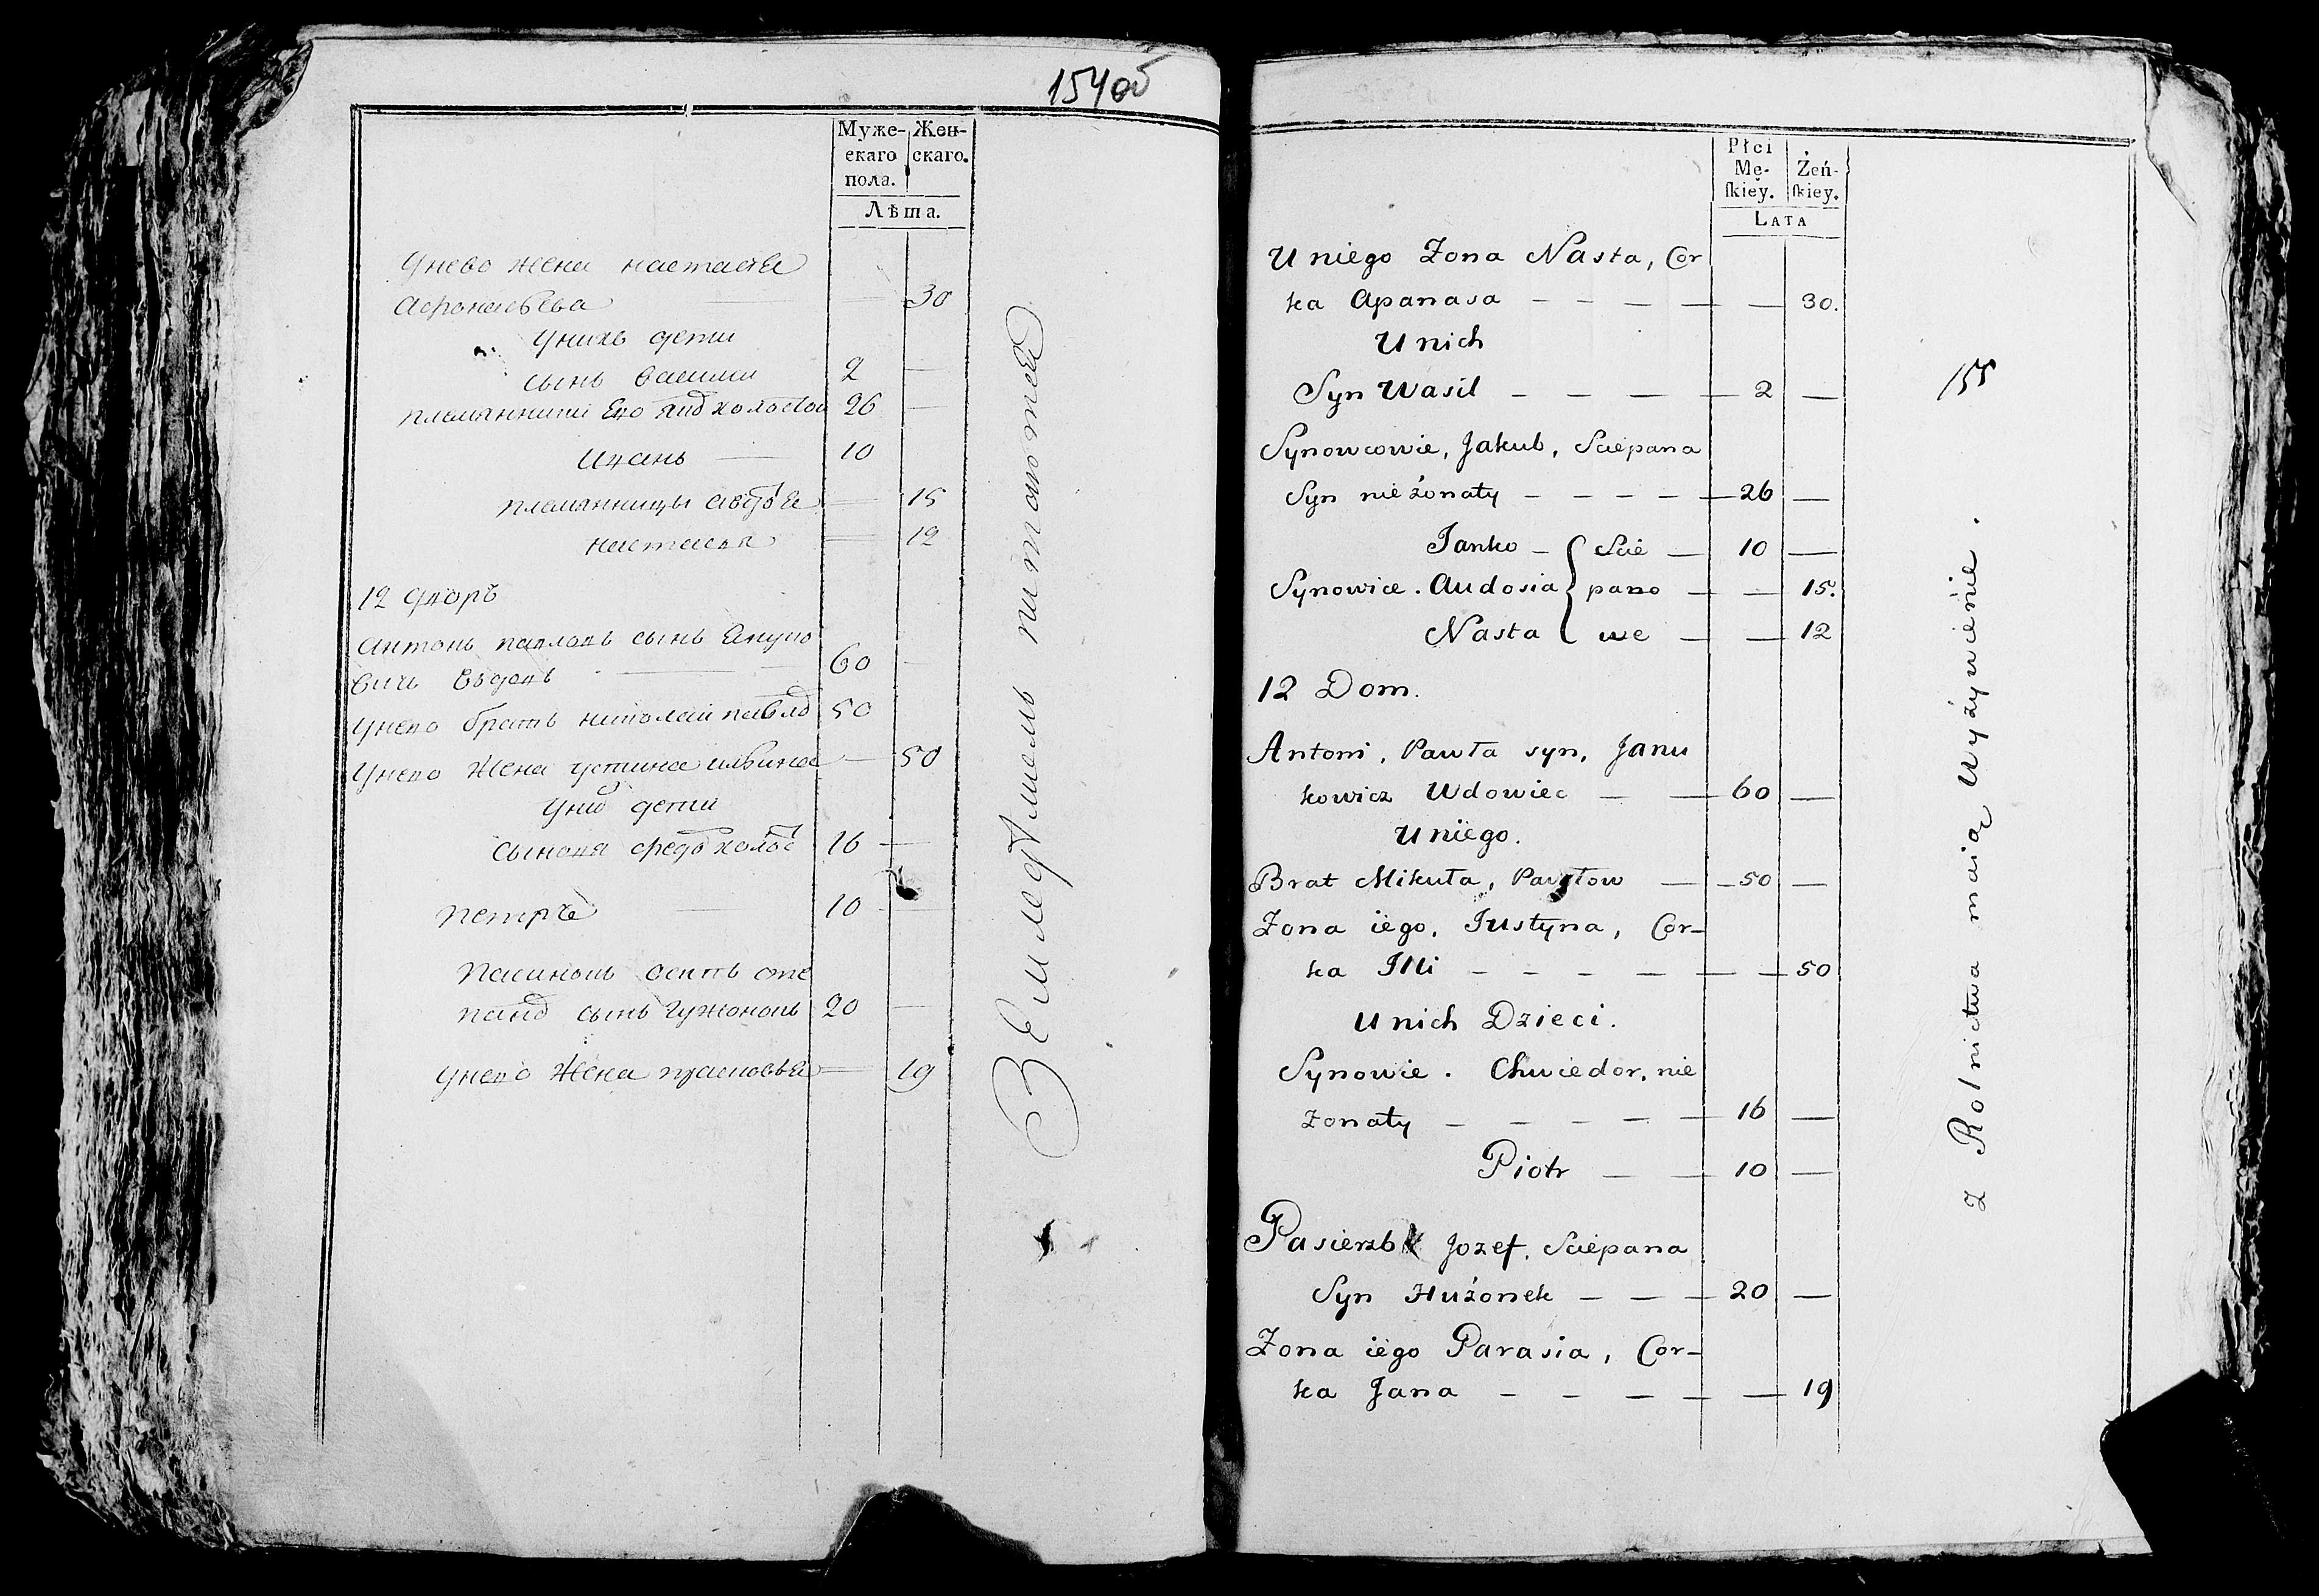 154об
Муже-
скаго
пола.
Жен-
скаго.
Лѣта.
Унево жена настасья
Афонасьева 30
Унихъ дети
сынъ василии 2
племянники Ево якоб холостои 26
Иванъ 10
племянницы авдоѳея 15
настасья 12
12 дворъ
Антонъ павловъ сынъ Януко
вичь вдовъ 60
Унево братъ николаи павло 50
Унево жена устина ильина 50
Уних дети
Сыновя федоръ холос 16
петръ 10
Пасинокъ осипъ сте
панов сынъ гужонокъ 20
Унево жена прасковья 19
Земледелиемъ питаются
Płci
Mę-
ſkiey.
Żeń-
ſkiey.
LATA
U niego Zona Nasta, Cor
ka Apanasa — — — — — 30.
U nich
Syn Wasil — — — — 2 —
Synowcowie, Jakub, Sciepana
Syn nieżonaty — — — — — 26 —
Janko — { Scie — 10 —
Synowice. Audosia { pano — — 15.
Nasta { we — — 12
12 Dom.
Antoni, Pawła syn, Janu
kowicz Wdowiec — — 60 —
U niego.
Brat Mikuła, Pawłow — — 50 —
Zona iego, Justyna, Cor-
ka Illi — — — — — — 50
U nich Dzieci.
Synowie. Chwiedor, nie
zonaty — — — — — 16 —
Piotr — — 10 —
Pasierzb Jozef, Sciepana
Syn Hużonek — — — 20 —
Zona iego Parasia, Cor-
ka Jana — — — — — 19
155
z Rolnictwa maią wyżywienie.